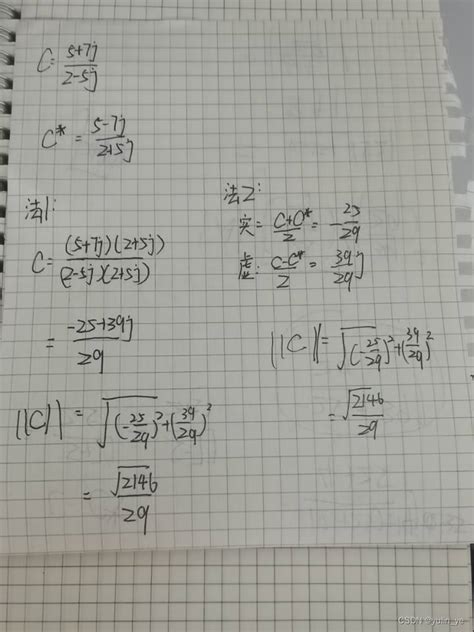 C = \frac{5+7j}{2-5j}
C* = \frac{5-7j}{2+5j}
法1:
C = \frac{(5+7j)(2+5j)}{(2-5j)(2+5j)}
= \frac{-25+39j}{29}
||C|| = \sqrt{(-\frac{25}{29})^2+(\frac{39}{29})^2}
= \frac{\sqrt{2146}}{29}
法2:
实= \frac{C+C*}{2} = -\frac{25}{29}
虚: \frac{C-C*}{2} = \frac{39}{29}j
||C|| = \sqrt{(-\frac{25}{29})^2+(\frac{39}{29})^2}
= \frac{\sqrt{2146}}{29}